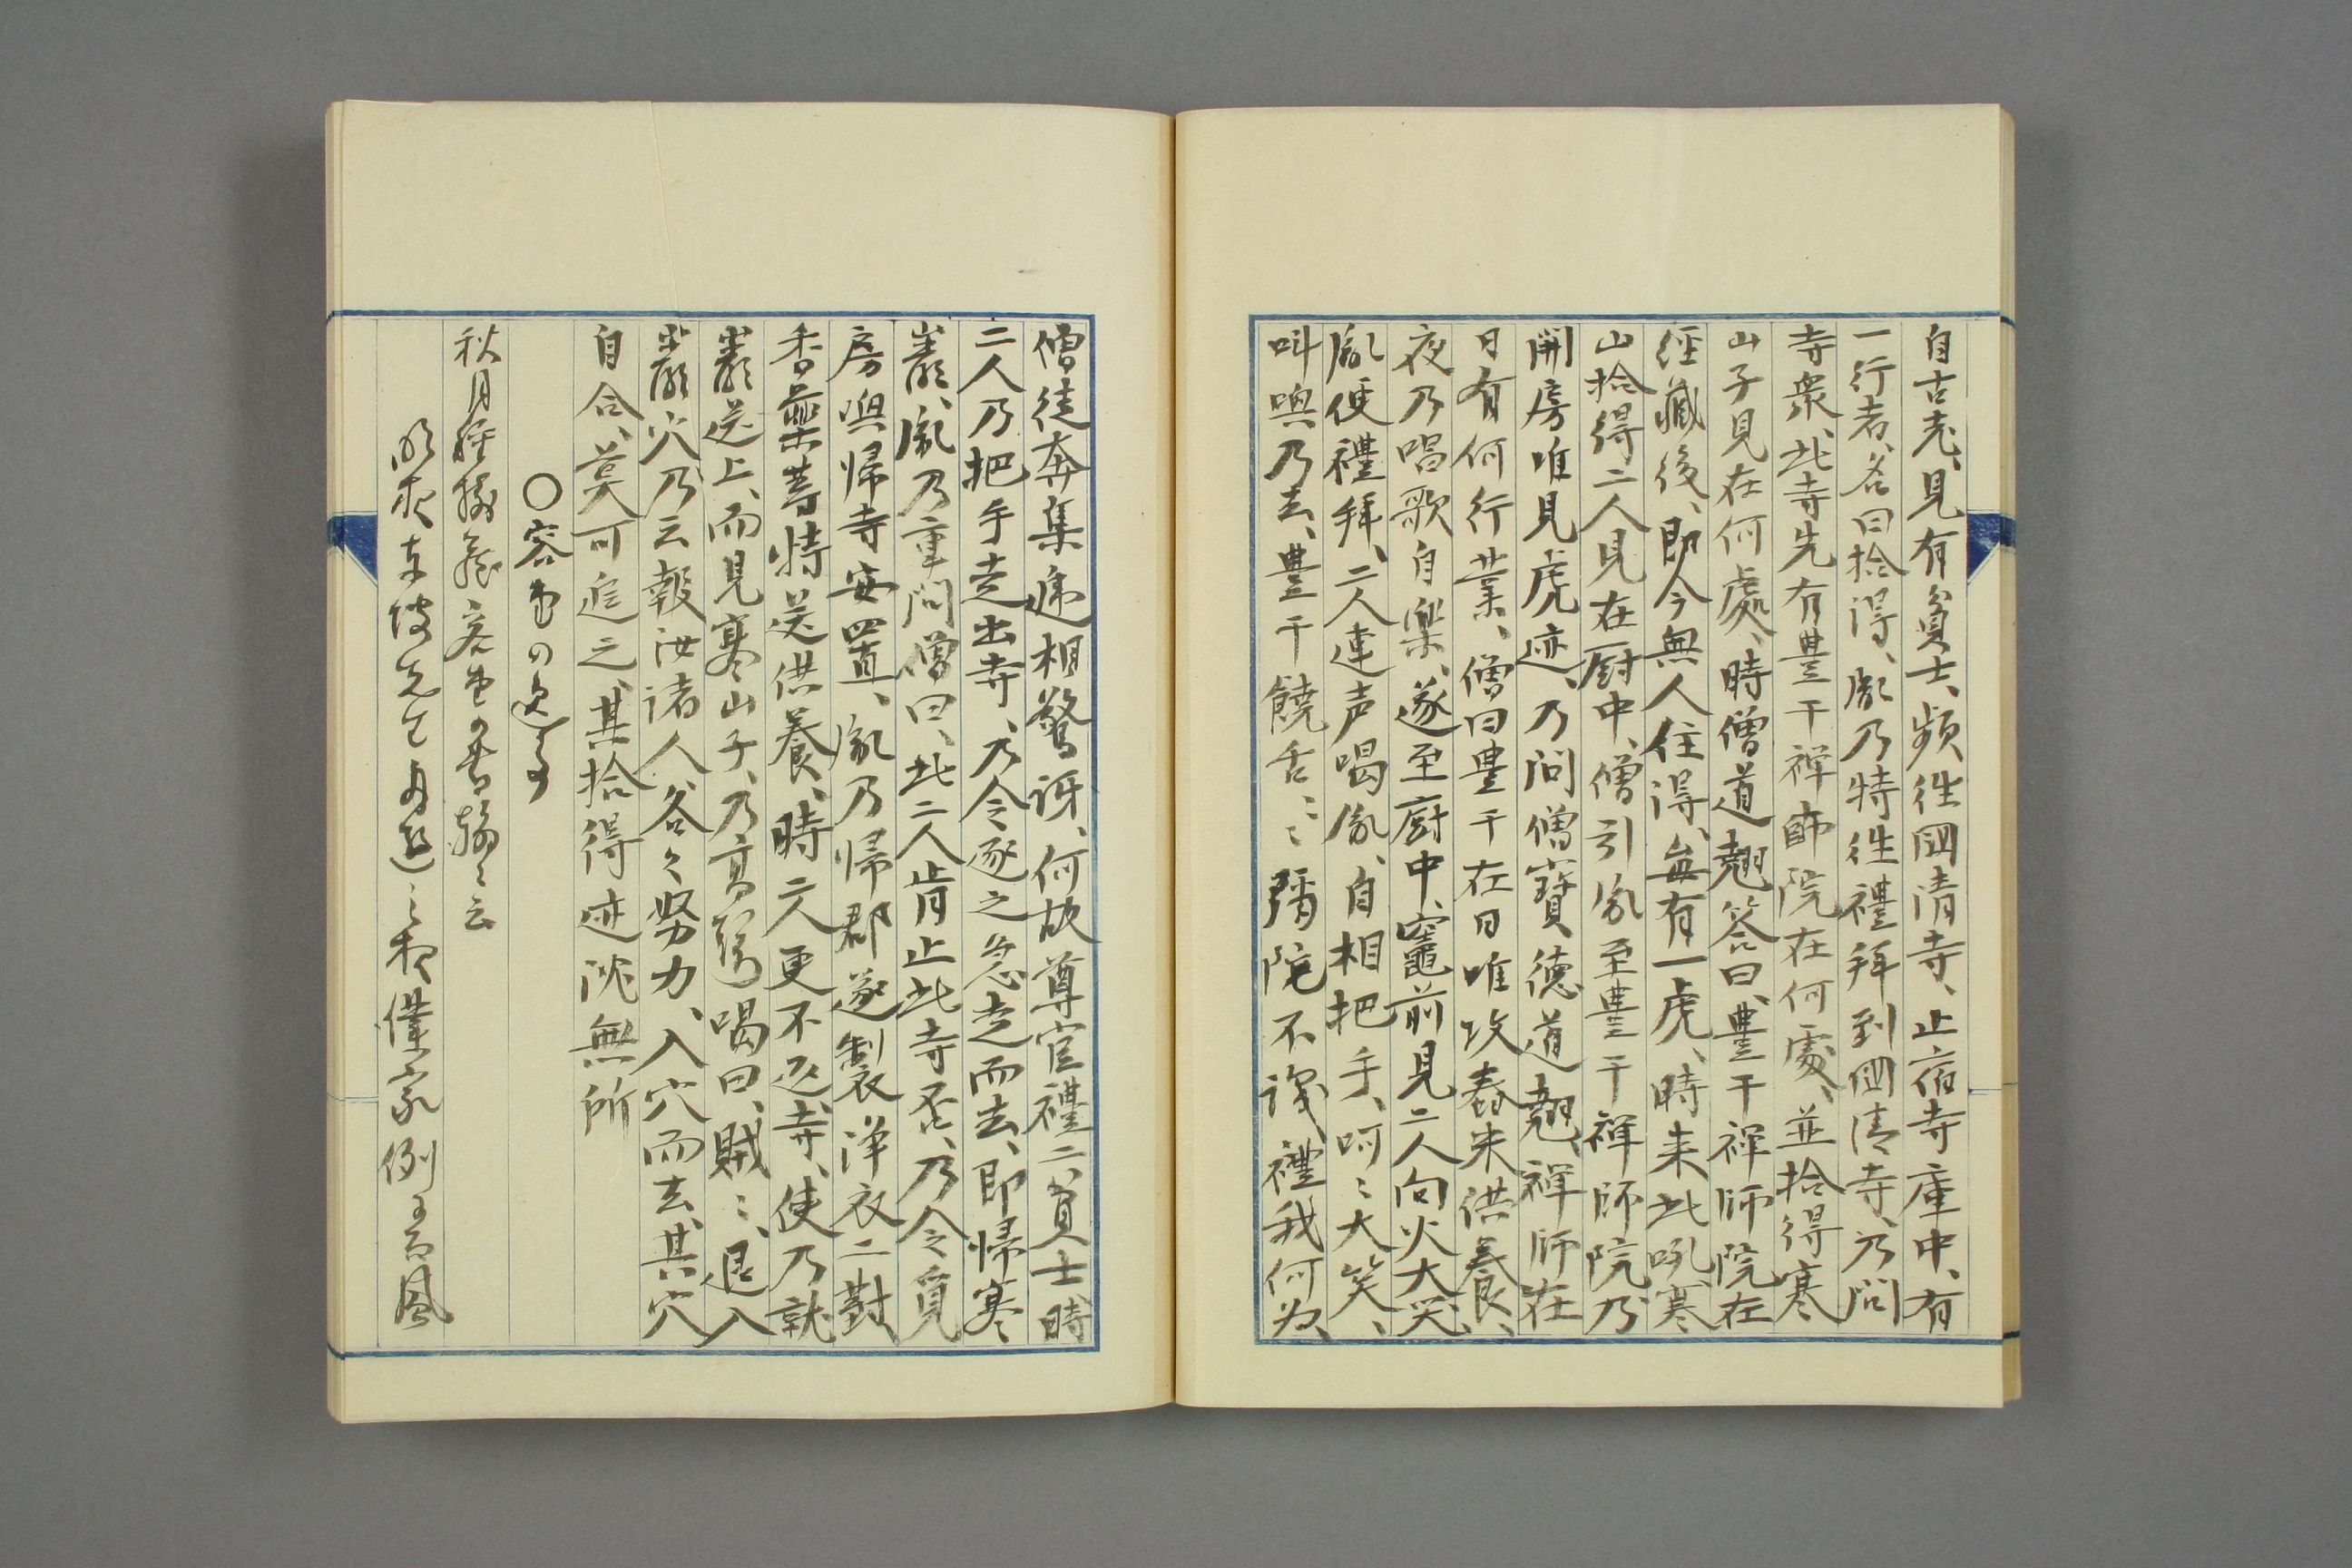 自古老、見有貧士、頻徃國清寺、止宿寺庫中、有
一行者、名曰拾得、胤乃特徃禮拜到國清寺、乃問
寺衆、此寺先有豊干禅師院在何處、並拾得寒
山子見在何處、時僧道翹答曰、豊干禅師院在
経藏後、即今無人住得、毎有一虎、時来此吼、寒
山拾得二人見在厨中、僧引胤至豊干禅師院乃
開房唯見虎迹、乃問僧寶徳道翹、禅師在
日有何行業、僧曰豊干在日唯攻舂米供養、
夜乃唱歌自楽、遂至厨中、竈前見二人向火大笑、
胤便禮拜、二人連声喝胤、自相把手、呵〻大笑、
叫喚乃去、豊干饒舌〻〻弥陀不識禮我何为、
僧徒奔集逓相驚訝、何故尊官禮二貧士、時
二人乃把手走出寺、乃令逐之急走而去、即帰寒
巌、胤乃重問僧曰、此二人肯止此寺否、乃令覓
房喚帰寺安置、胤乃帰郡遂製浄衣二對、
香薬等特送供養、時二人更不返寺、使乃就
巌送上、而見寒山子、乃高聲喝曰、賊〻、退入
巌穴乃云報汝諸人各々努力、入穴而去、其穴
自合、莫可追之、其拾得迹沈無所
〇客
秋月
家例